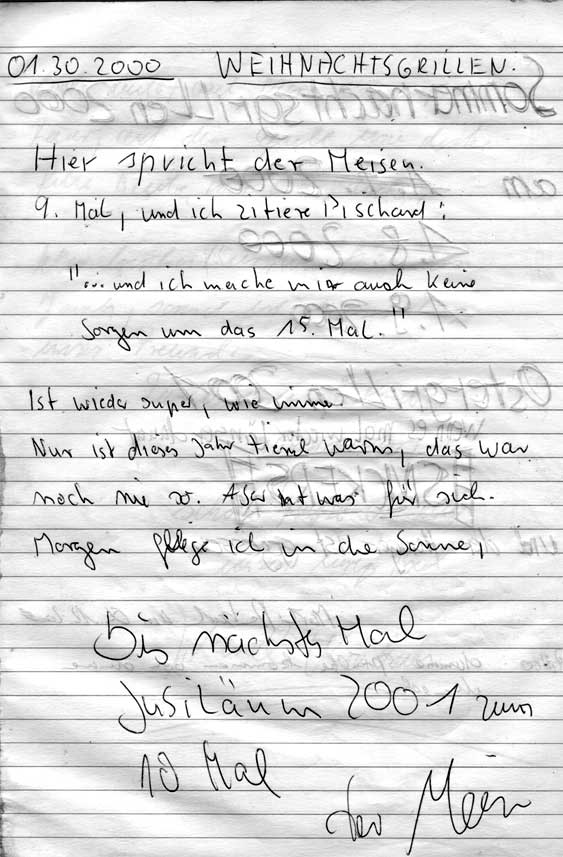 01.30.2000 WEIHNACHTSGRILLEN.
Hier spricht der Meisen.
9. Mal, und ich zitiere Pischard:
"... und ich mache mir auch keine
Sorgen um das 15. Mal."
Ist wieder super, wie immer.
Nur ist dieses Jahr warm, das war
noch nie so. Aber hat was für sich.
Morgen fliege ich in die Sonne,
Bis nächstes Mal
Jubiläum 2001 zum
10 Mal
der